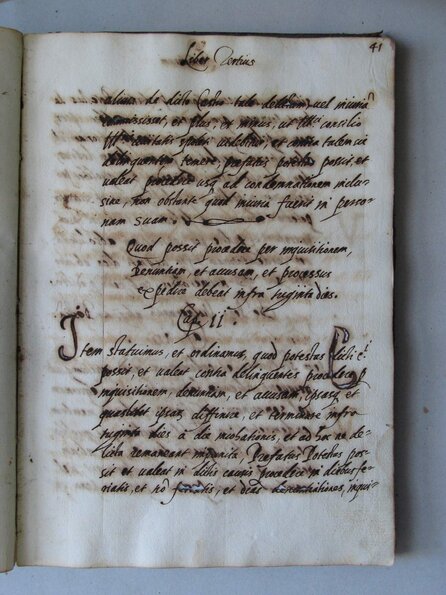 41
Liber Tertius
aliuis de dicto Castro tale delictum, vel iniuria
commississet, et plus, et minus, ut consilio
videbitur, et contra talem
delinquentem tenere, prefatus potestas possit, et
valeat procedere usq ad condemnationem inclu-
sive, non obstante quod iniuria fuerit in perso-
nam suam.
Quod possit procedere per inquisitionem,
Denuntiam, et accusam, et processus
expedire debeat infra triginta dies.
Cap. II
Item statuimus, et ordinamus, quod potestas
possit, et valeat contra delinquentes procedere p
inquisitionem, denuntiam, et accusam, ipsasq, et
quaslibet ipsarum diffinire, et terminare infra
triginta dies a die incohationis, et ad hoc ne de-
licta remaneant impunita, Prefatus Potestas pos-
sit et valeat in dictis causis procedere in diebus fe-
riatis, et nō feriatis, et dictas denuntiationes, inqui-